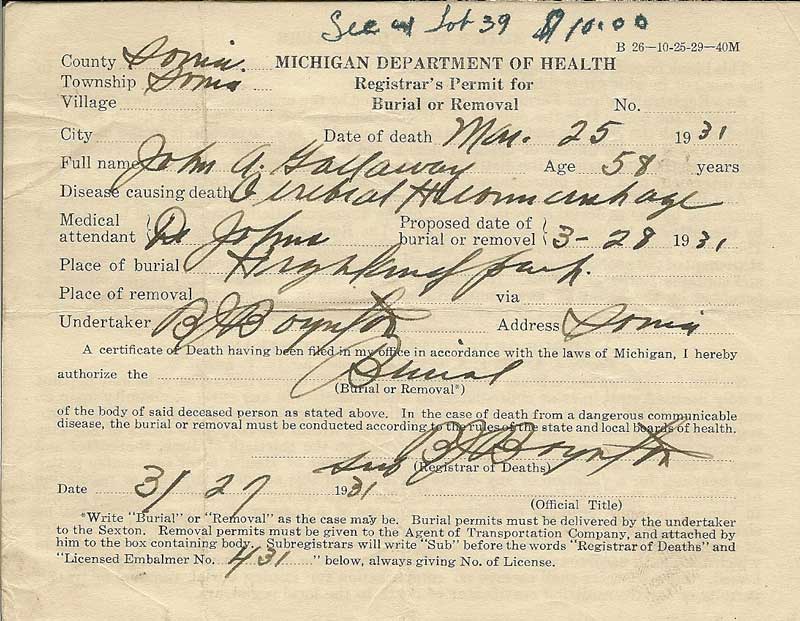 See Lot 39 $10.00
B 26—10-25-29—40M
County Ionia.
MICHIGAN DEPARTMENT OF HEALTH
Township Ionia
Registrar's Permit for
Village
Burial or Removal No.
City Date of death Mar. 25 1931
Full name John A. Gallaway Age 58 years
Disease causing death Cerebral
Medical attendant Dr Johns Proposed date of burial or removel 3-28 1931
Place of burial Highland park.
Place of removal via
Undertaker B J Boynton Address Ionia
A certificate of Death having been filed in my office in accordance with the laws of Michigan, I hereby
authorize the Burial
(Burial or Removal*)
of the body of said deceased person as stated above. In the case of death from a dangerous communicable
disease, the burial or removal must be conducted according to the rules of the state and local boards of health.
Sub B J Boynton
(Registrar of Deaths)
Date 3/27 1931
(Official Title)
*Write "Burial" or "Removal" as the case may be. Burial permits must be delivered by the undertaker
to the Sexton. Removal permits must be given to the Agent of Transportation Company, and attached by
him to the box containing body. Subregistrars will write "Sub" before the words "Registrar of Deaths" and
"Licensed Embalmer No. 431" below, always giving No. of License.